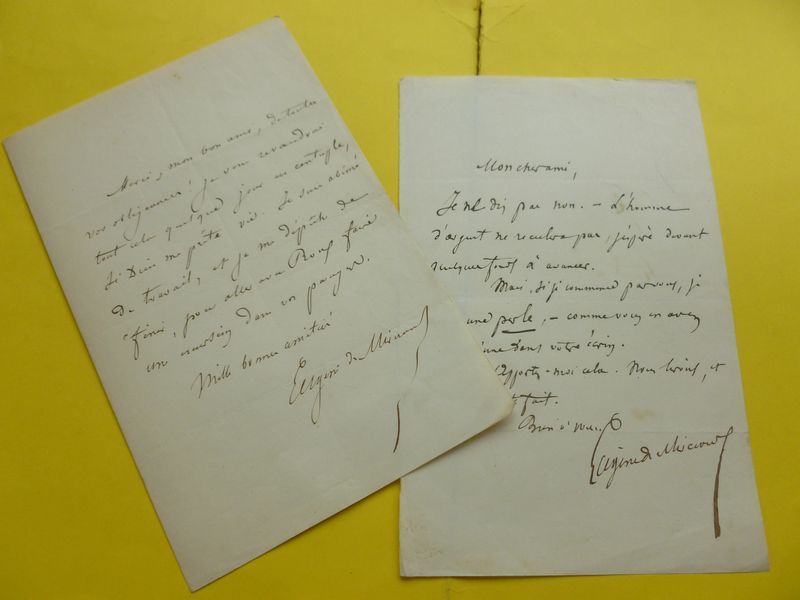 Merci, mon bon ami, de toutes
vos obligeances! je vous revaudrai
tout cela quelque jour au centuple,
si Dieu me prête vie. Je suis abîmé
de travail, et je me dépêche de
finir, pour aller avec faire
une excursion dans vos parages.
Mille bonnes amitiés
Eugène de Mirecourt
Mon cher ami,
Je ne dis pas non. – L'homme
d'argent ne reculera pas, j'espère devant
quelques fonds à avancer.
Mais, si je commence par vous, je
une perle, – comme vous en avez
une dans votre écrin.
Apportez-moi cela. Nous lirons, et
fait.
Bien à vous.
Eugène de Mirecourt